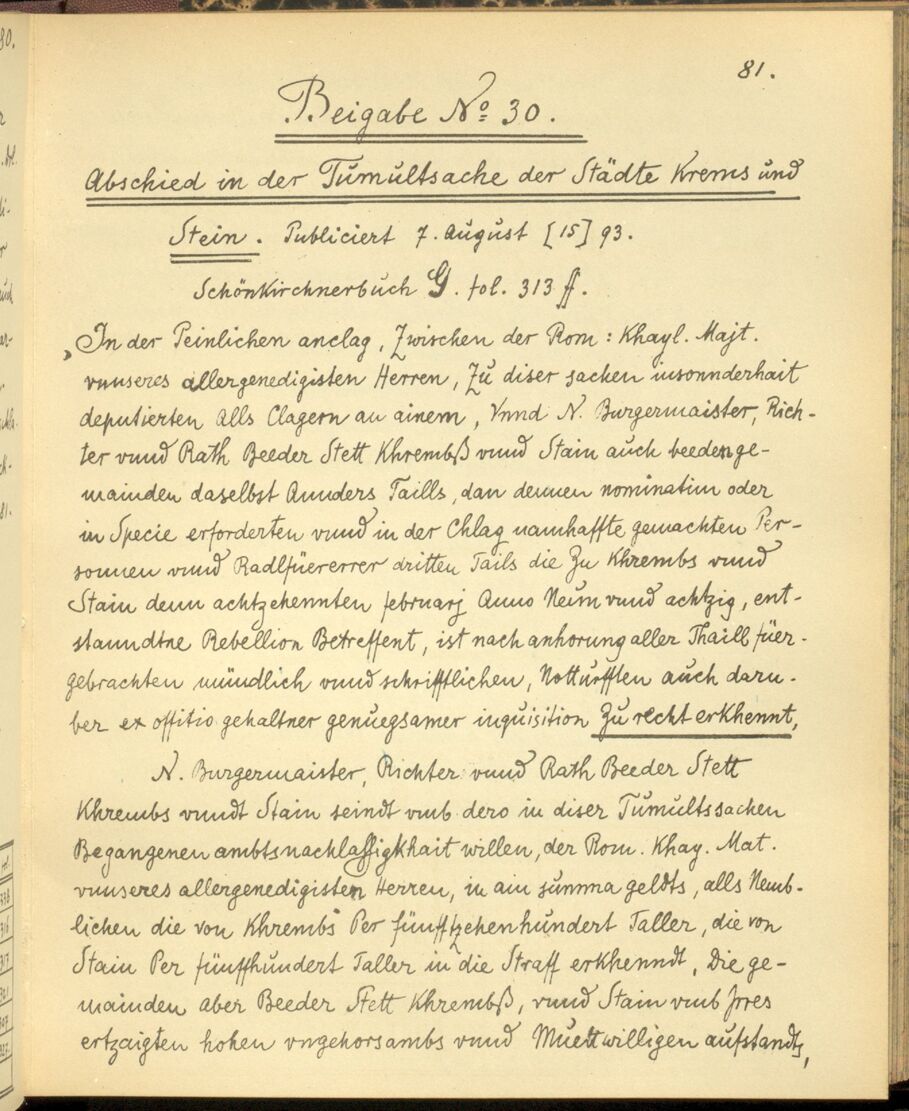 81.
Beigabe No 30.
Abschied in der Tumultsache der Städte Krems und
Stein. Publiciert 7. August [15] 93.
Schönkirchnerbuch G. fol. 313 ff.
„In der Peinlichen anclag, Zwischen der Rom: Khayl. Majt.
vnnseres allergenedigisten Herren, Zu diser sachen insonnderhait
deputierten Alls Clagern an ainem, Vnnd N. Burgermaister, Rich-
ter vnnd Rath Beeder Stett Khrembß vnnd Stain auch beeden ge-
mainden daselbst Annders Taills, dan dennen nominatim oder
in Specie erforderten vnnd in der Chlag namhaffte gemachten Per-
sonnen vnnd Radlfüererrer dritten Tails die Zu Khrembs vnnd
Stain denn achtzehennten februarj Anno Neun vnnd achtzig, ent-
stanndtne Rebellion Betreffent, ist nach anhorung aller Thaill füer-
gebrachten mündlich vnnd schrifftlichen, Notturfften auch daru-
ber ex offitio gehaltner genuegsamer inquisition Zu recht erkhennt,
N. Burgermaister, Richter vnnd Rath Beeder Stett
Khrembs vnndt Stain seindt vmb dero in diser Tumultssachen
Begangenen ambtsnachlassigkhait willen, der Rom. Khay. Mat.
vnnseres allergenedigisten Herren, in ain summa geldts, alls Nemb-
lichen die von Khrembs Per fünfftzehenhundert Taller, die von
Stain Per fünffhundert Taller in die Straff erkhenndt, Die ge-
mainden aber Beeder Stett Khrembß, vnnd Stain vmb Jrres
ertzaigten hohen vngehorsambs vnnd Muettwilligen aufstandts,